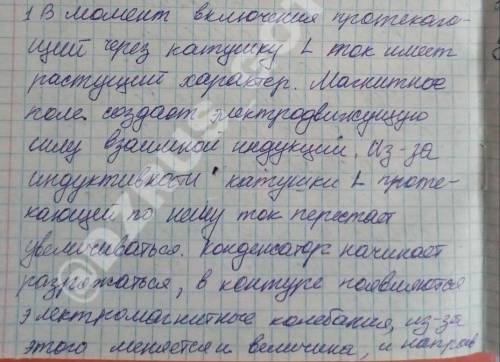 1 В момент включения протекаю-
щий через катушку L ток имеет
растущий характер. Магнитное
поле создает электродвижущую
силу взаимной индукции. Из-за
индуктивности катушки L проте-
кающей по нему ток перестает
увеличиваться. Конденсатор начинает
разряжаться, в контуре появляются
электромагнитные колебания, из-за
этого меняется и величина, и направ